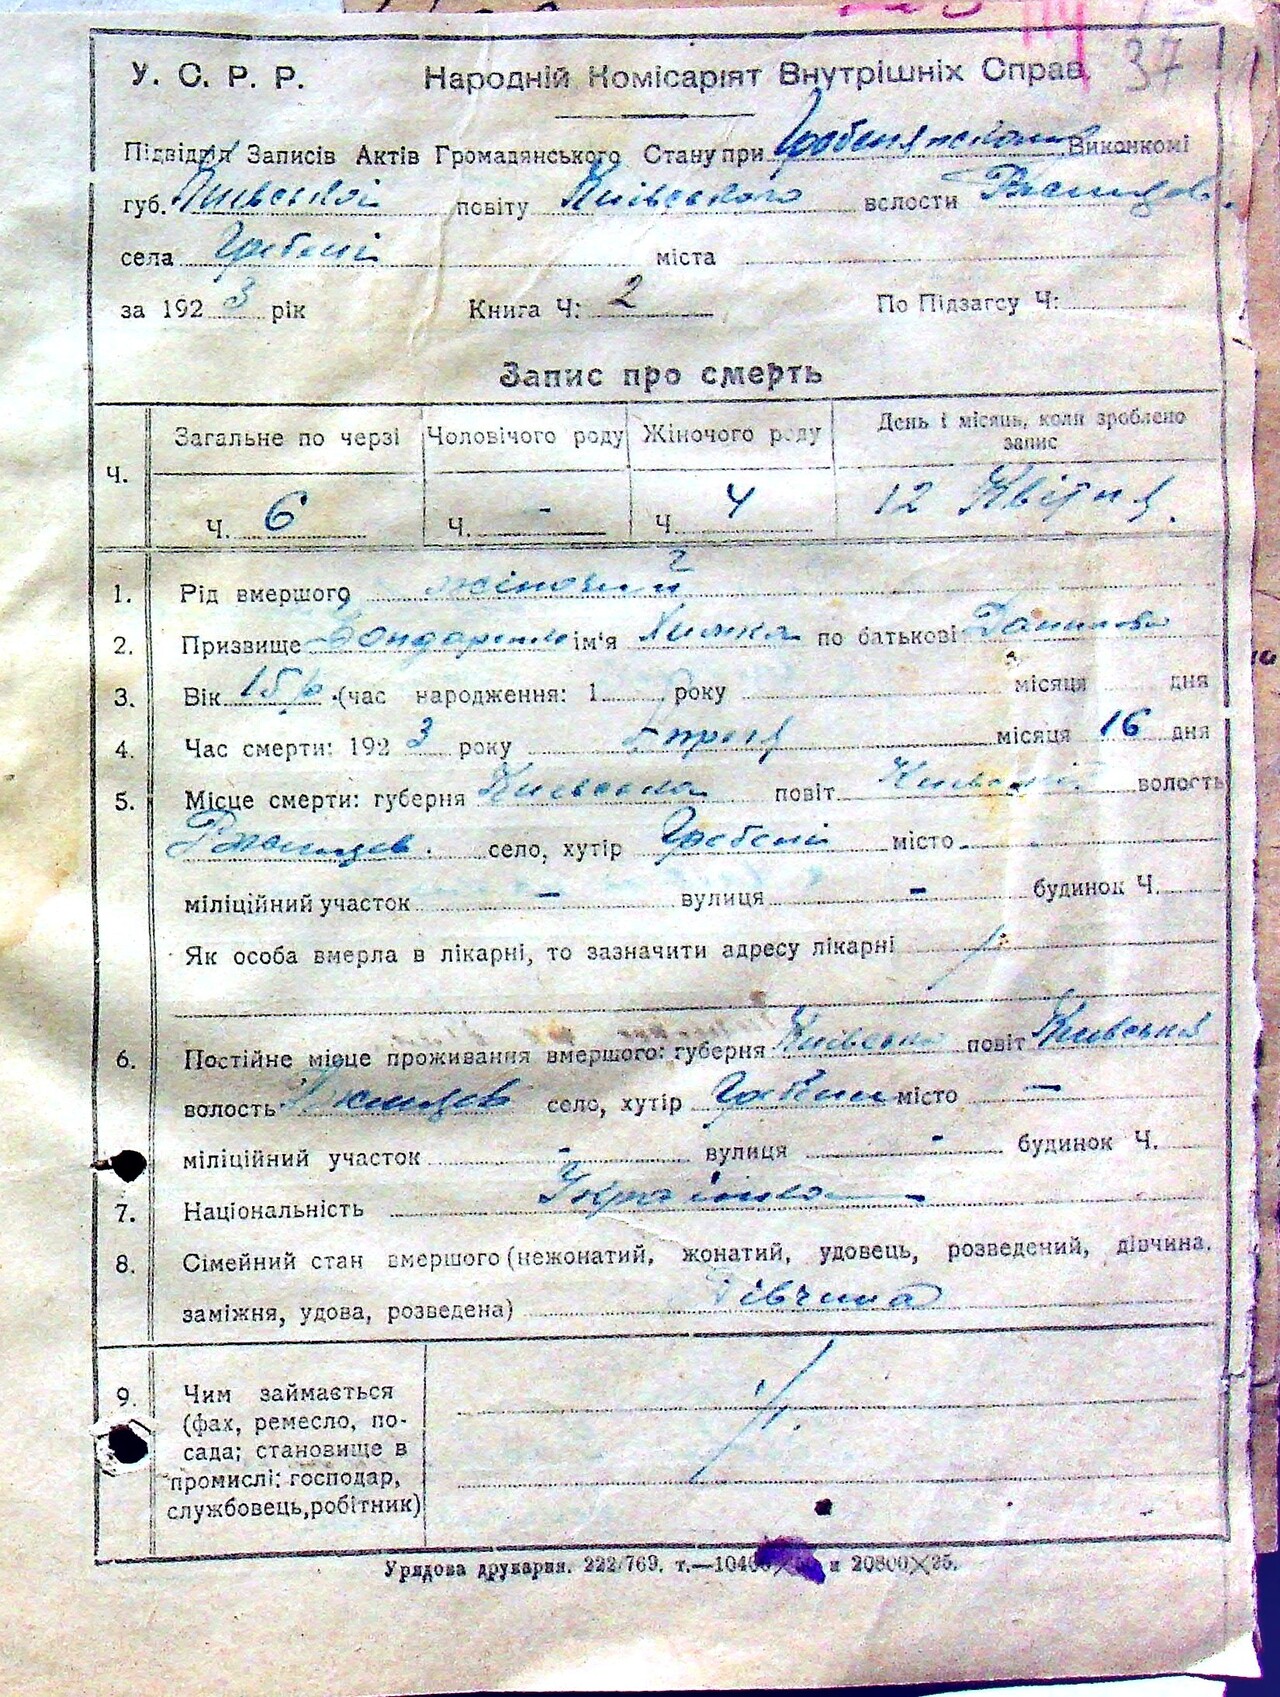 37
У. С. Р. Р. Народній Комісаріят Внутрішніх Справ
Підвідділ Записів Актів Громадянського Стану при Виконкомі
губ. Київської повіту Київського волости Ржищев.
села Гребені міста
за 1923 рік Книга Ч: 2 По Підзагсу Ч:
Запис про смерть
Ч. Загальне по черзі Чоловічого роду Жіночого роду День і місяць, коли зроблено запис
Ч. 6 Ч. - Ч. 4 12 Квітня.
1. Рід вмершого жіночий
2. Призвище Бондаренко ім'я Химка по батькові Данилова
3. Вік 15 р. (час народження: 1 року місяця дня
4. Час смерти: 1923 року місяця 16 дня
5. Місце смерти: губерня Київська повіт Київський волость
Ржищев. село, хутір Гребені місто
міліційний участок - вулиця - будинок Ч.
Як особа вмерла в лікарні, то зазначити адресу лікарні
6. Постійне місце проживання вмершого: губерня Київська повіт Київський
волость Ржищев село, хутір Гребени місто -
міліційний участок - вулиця - будинок Ч.
7. Національність Українка
8. Сімейний стан вмершого (нежонатий, жонатий, удовець, розведений, дівчина,
заміжня, удова, розведена) Дівчина
9. Чим займається
(фах, ремесло, по-
сада; становище в
промислі: господар,
службовець, робітник)
Урядова друкарня. 222/769. т.—10400 и 20800×25.